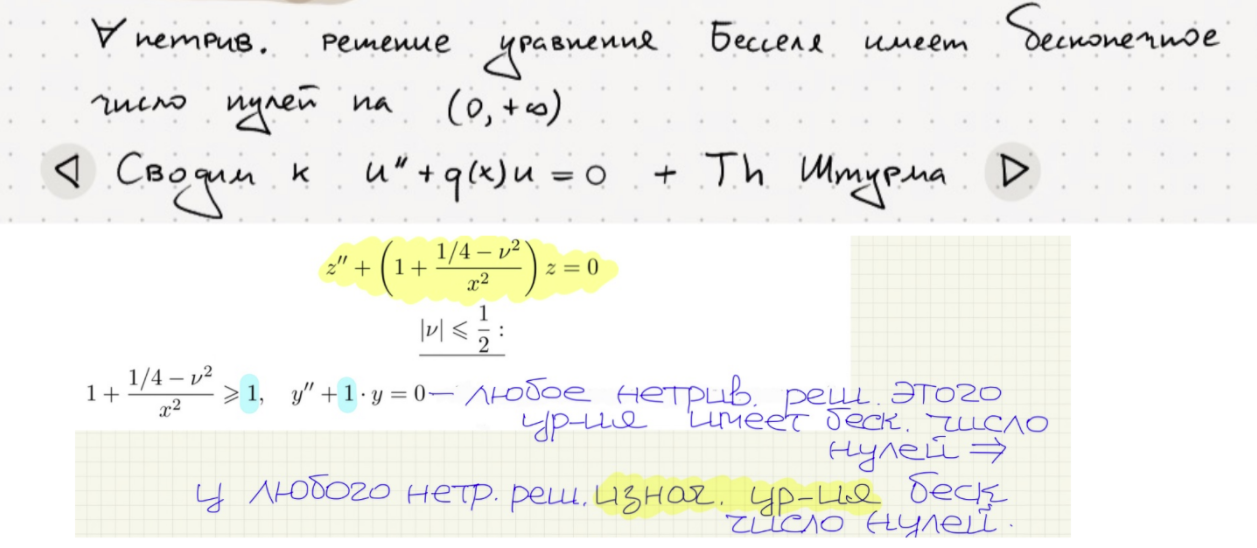 ∀ нетрив. решение уравнения Бесселя имеет бесконечное
число нулей на (0, +∞)
◁ Сводим к u" + q(x)u = 0 + Th Штурма ▷
z″ + (1 + (1/4 − ν²)/x²) z = 0
|ν| ⩽ 1/2 :
1 + (1/4 − ν²)/x² ⩾ 1, y″ + 1 · y = 0 — любое нетрив. реш. этого
ур-ия имеет беск. число
нулей ⇒
у любого нетр. реш. изнач. ур-ия беск
число нулей.